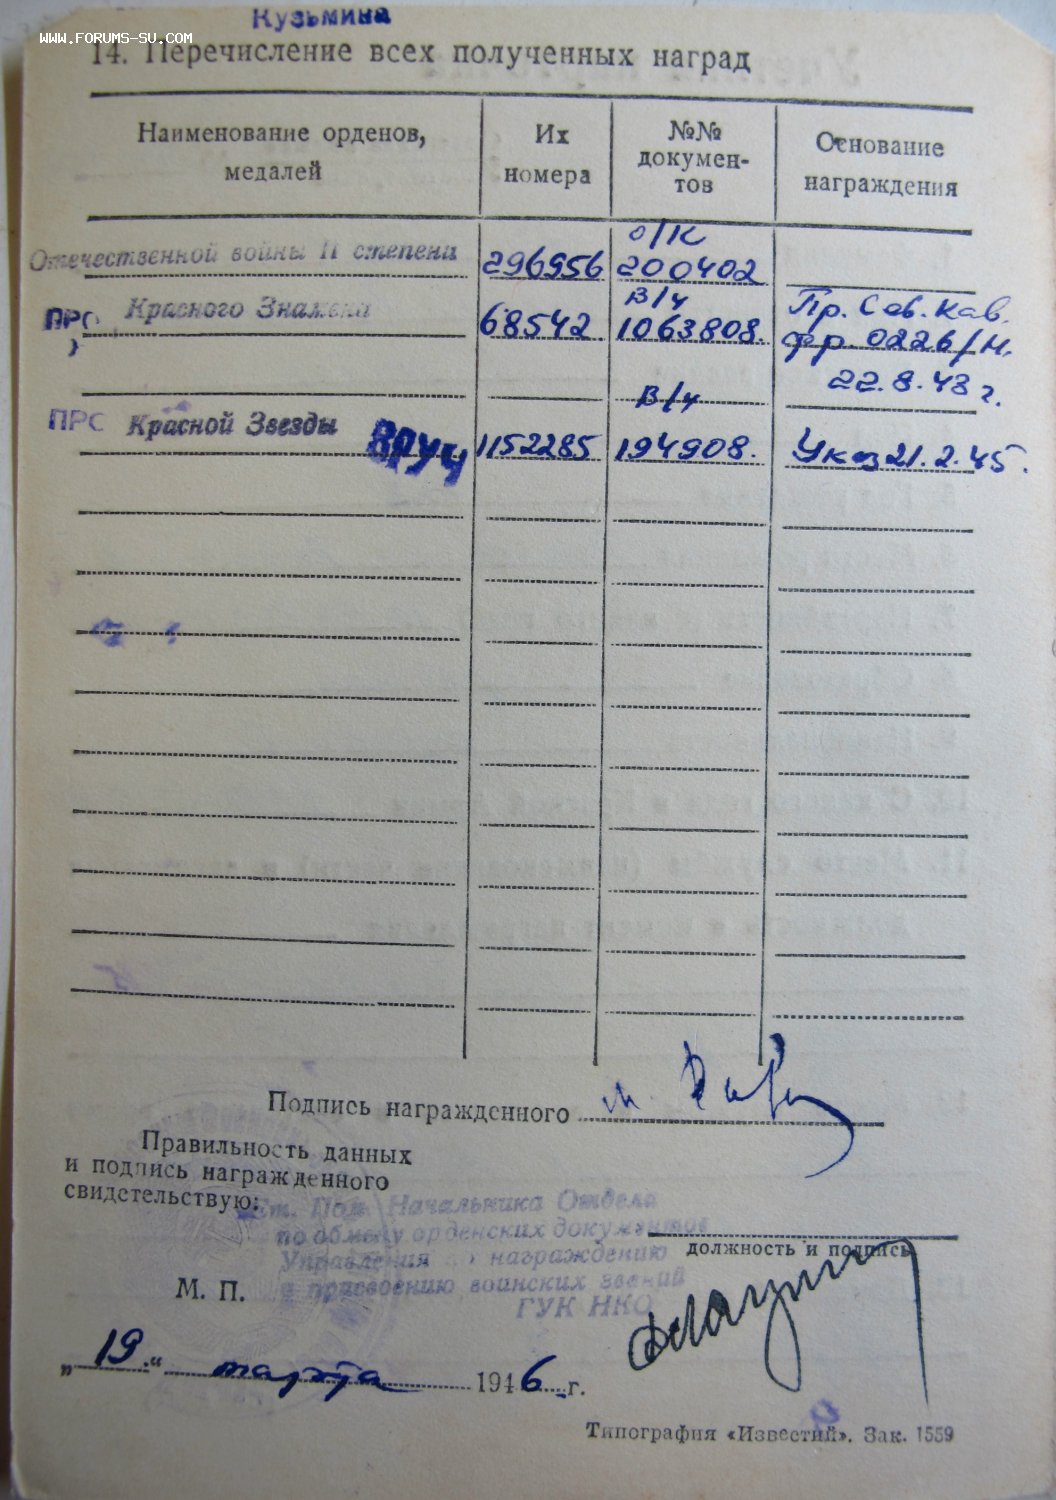 Кузьмина
www.forums-su.com
14. Перечисление всех полученных наград
Наименование орденов, медалей
Их номера
№№ докумен-
тов
Основание награждения
Отечественной войны II степени 296956 о/к 200402
ПРС Красного Знамени 68542 в/ч 1063808. Пр. Сев. Кав.
фр. 0226/н.
22.8.43 г.
ПРС Красной Звезды ВРУЧ 1152285 в/ч 194908. Указ 21.2.45.
Подпись награжденного
Правильность данных
и подпись награжденного
свидетельствую:
Ст. Пом. Начальника Отдела
по обмену орденских документов
Управления по награждению
и присвоению воинских званий
ГУК НКО
должность и подпись
М. П.
„19“ марта 1946 г.
Типография «Известий». Зак. 1559